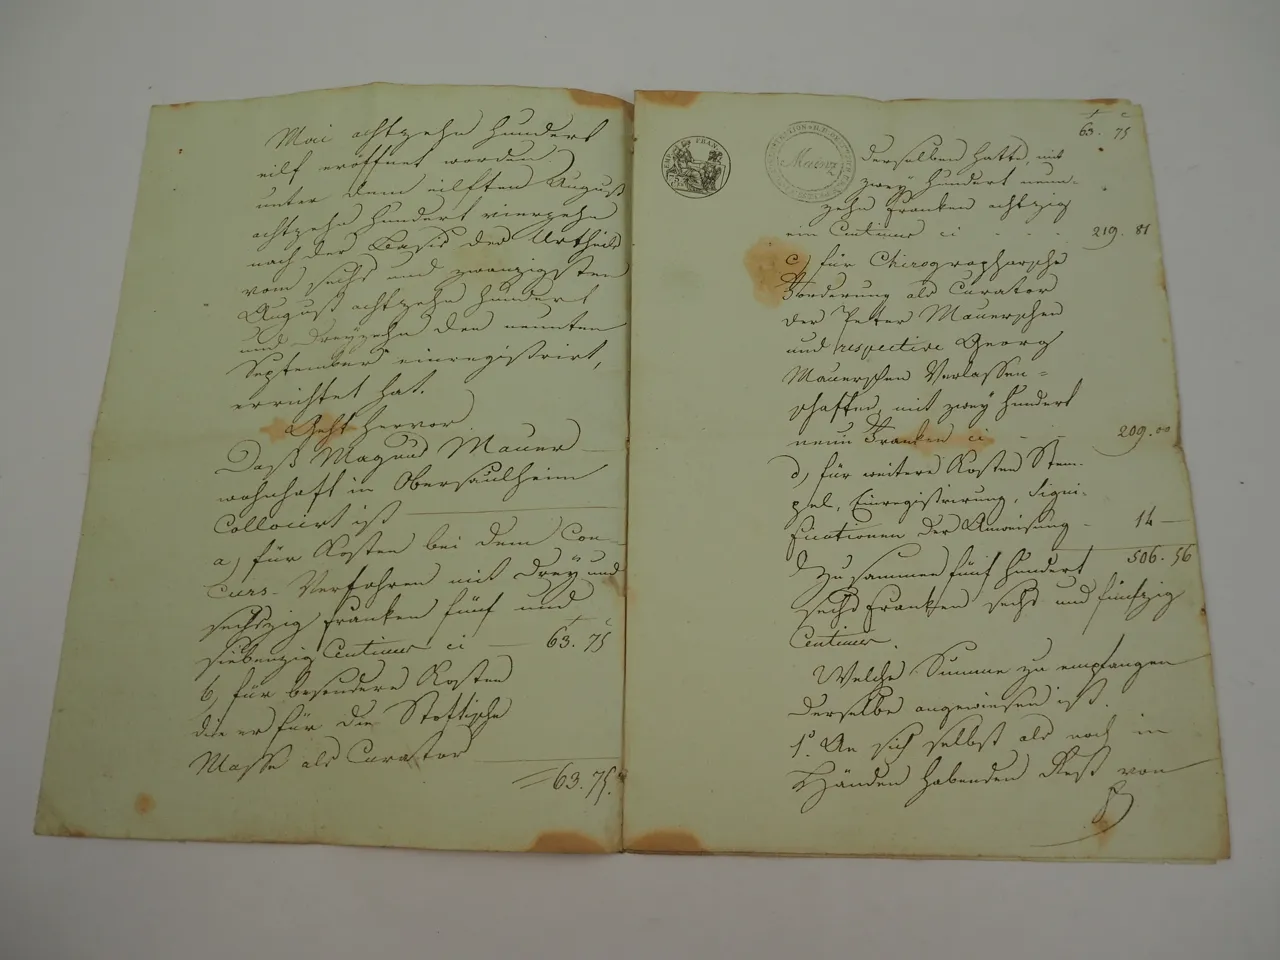 Mai achtzehn hundert
eilf eröffnet worden
unter dem eilften August
achtzehn hundert vierzehn
nach der Basis der Urtheile
vom sechs und zwanzigsten
August achtzehn hundert
und dreyzehn den neunten
September einregistrirt,
errichtet hat.
Geht hervor
Daß Magnus Mauer
wohnhaft in Obersaulheim
Collocirt ist
a) für Kosten bei dem Con-
curs-Verfahren mit drey und
sechszig Franken fünf und
siebenzig Centimes ci — 63. 75
b) für besondere Kosten
die er für die
Masse als Curator
63. 75.
63. 75
TIMB
FRAN
Mainz
derselben hatte, mit
zwey hundert neun-
zehn Franken achtzig
ein Centimes ci - - - 219. 81
c) für Chirographarsche
Forderung als Curator
der Peter Mauerschen
und respective Georg
Mauerschen Verlassen-
schaften, mit zwey hundert
neun Franken ci - - 209.00
d) für weitere Kosten Stem-
pel, Einregistrirung, Signi-
ficationen der Anweisung - 14 —
Zusammen fünf hundert 506. 56
sechs Franken sechs und fünfzig
Centimes.
Welche Summe zu empfangen
derselbe angewiesen ist.
1° An sich selbst als noch in
Händen habenden Rest von